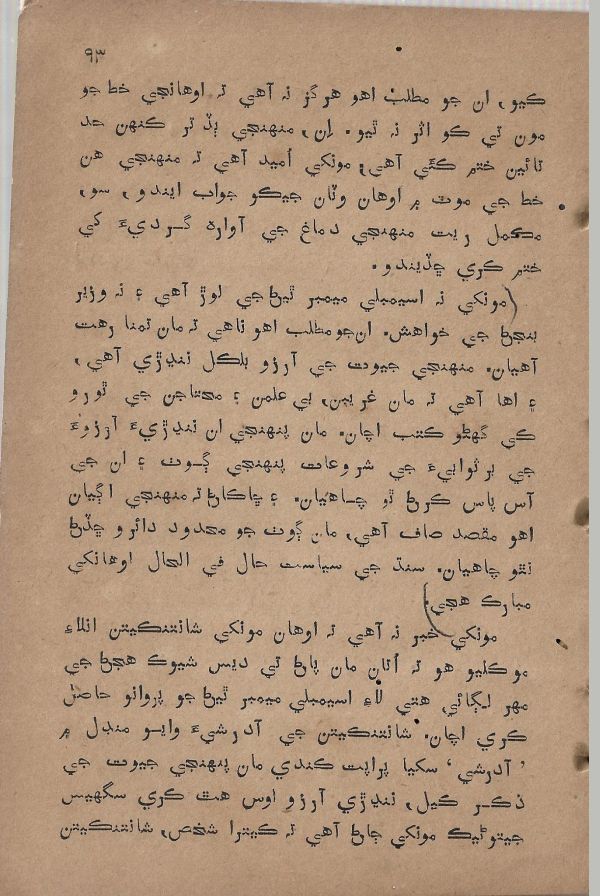 ۹۳
ڪيو، ان جو مطلب اهو هرگز نہ آهي تہ اوهانجي خط جو
مون تي ڪو اثر نہ ٿيو. ان، منهنجي ٻڏ تر ڪنهن حد
تائين ختم ڪئي آهي، مونکي اُميد آهي تہ منهنجي هن
خط جي موٽ ۾ اوهان وٽان جيڪو جواب ايندو، سو،
مڪمل ريت منهنجي دماغ جي آواره گرديءَ کي
ختم ڪري ڇڏيندو.
(مونکي نہ اسيمبلي ميمبر ٿيڻ جي لوڙ آهي ۽ نہ وزير
بنجڻ جي خواهش. ان جو مطلب اهو ناهي تہ مان تمنا رهت
آهيان. منهنجي جيوت جي آرزو بلڪل ننڍڙي آهي،
۽ اها آهي تہ مان غريبن، بي علمن ۽ محتاجن جي ٿورو
کي گهڻو ڪتب اچان. مان پنهنجي ان ننڍڙيءَ آرزوءَ
جي برثوابيءَ جي شروعات پنهنجي ڳوٺ ۽ ان جي
آس پاس ڪرڻ ٿو چاهيان. ۽ ڇاڪاڻ تہ منهنجي اڳيان
اهو مقصد صاف آهي، مان ڳوٺ جو محدود دائرو ڇڏڻ
نٿو چاهيان. سنڌ جي سياست حال في الحال اوهانکي
مبارڪ هجي.)
مونکي خبر نہ آهي تہ اوهان مونکي شانتنڪيتن انلاءِ
موڪليو هو تہ اُتان مان پاڻ تي ديس شيوڪ هجڻ جي
مهر لڳائي هتي لاءِ اسيمبلي ميمبر ٿيڻ جو پروانو حاصل
ڪري اچان. شانتنڪيتن جي آدرشيءَ وايو منڊل ۾
’آدرشي‘ سکيا پراپت ڪندي مان پنهنجي جيوت جي
ذڪر ڪيل، ننڍڙي آرزو اوس هٿ ڪري سگهيس
جيتوڻيڪ مونکي ڄاڻ آهي تہ ڪيترا شخص، شانتنڪيتن